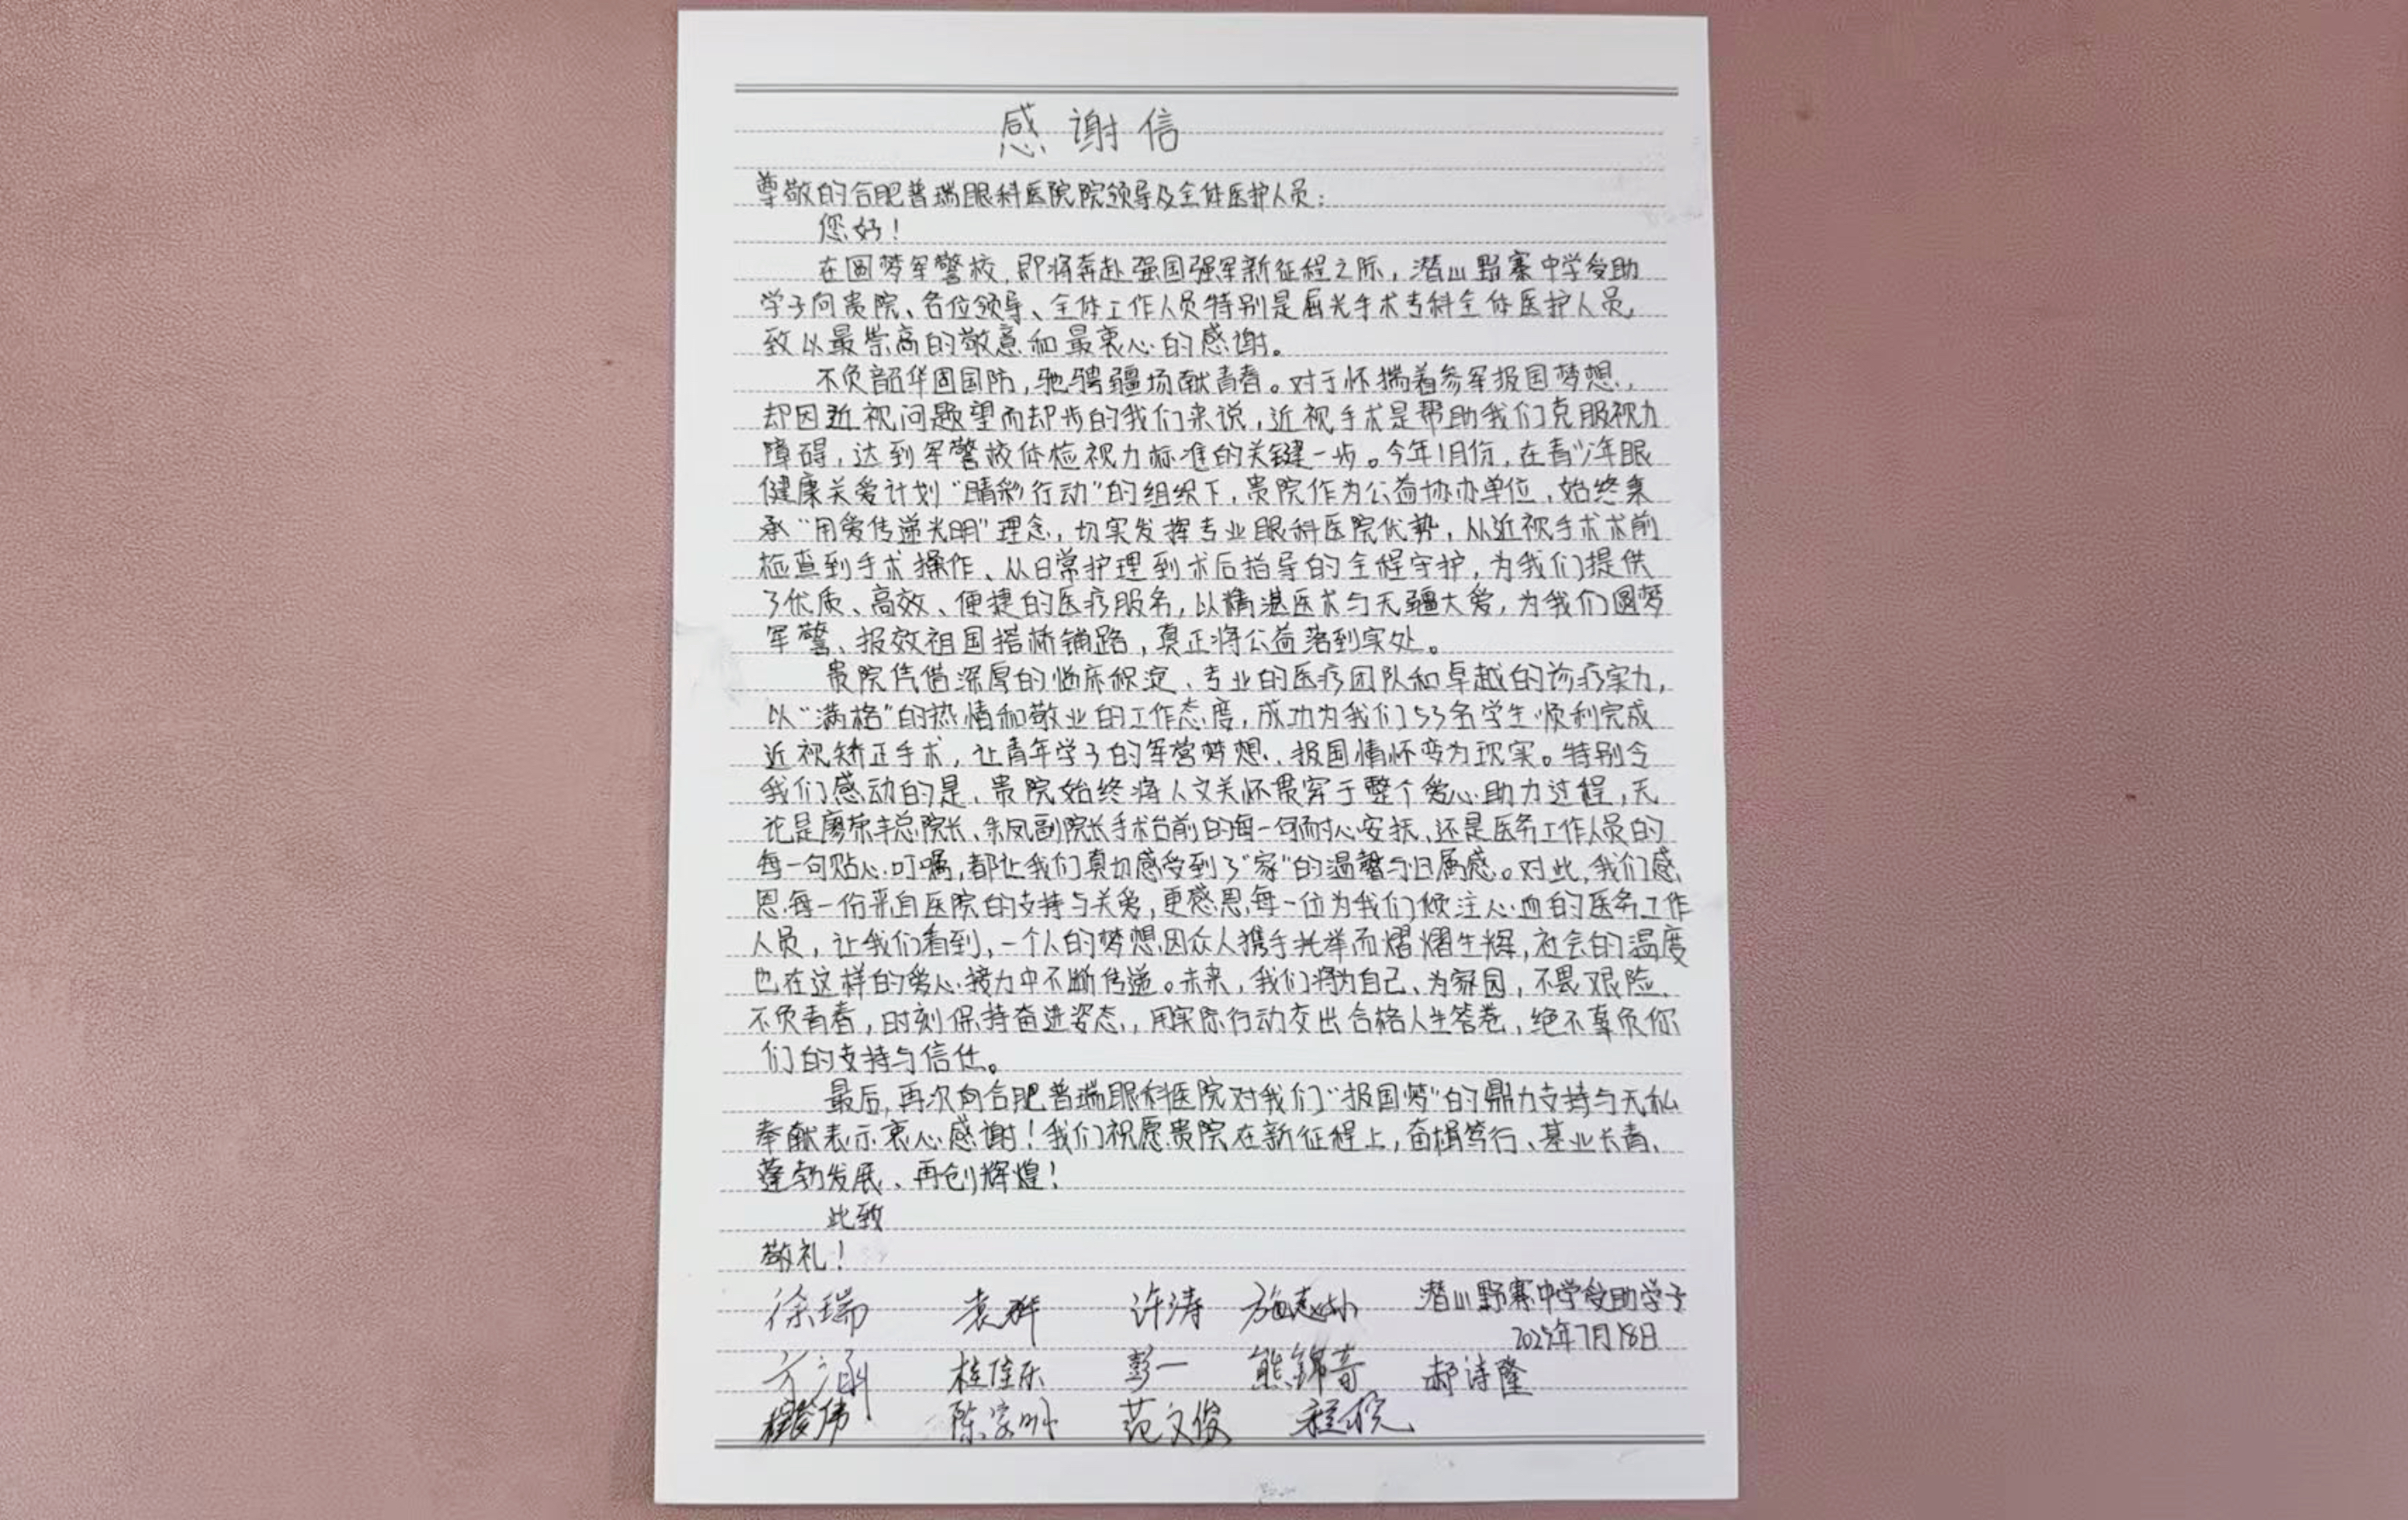 感谢信
尊敬的合肥普瑞眼科医院院领导及全体医护人员：
您好！
在圆梦军警校，即将奔赴强国强军新征程之际，潜山野寨中学受助
学子向贵院、各位领导、全体工作人员特别是屈光手术专科全体医护人员，
致以最崇高的敬意和最衷心的感谢。
不负韶华固国防，驰骋疆场献青春。对于怀揣着参军报国梦想，
却因近视问题望而却步的我们来说，近视手术是帮助我们克服视力
障碍，达到军警校体检视力标准的关键一步。今年1月份，在青少年眼
健康关爱计划“睛彩行动”的组织下，贵院作为公益协办单位，始终秉
承“用爱传递光明”理念，切实发挥专业眼科医院优势，从近视手术术前
检查到手术操作、从日常护理到术后指导的全程守护，为我们提供
了优质、高效、便捷的医疗服务，以精湛医术与无疆大爱，为我们圆梦
军警、报效祖国搭桥铺路，真正将公益落到实处。
贵院凭借深厚的临床积淀、专业的医疗团队和卓越的诊疗实力，
以“满格”的热情和敬业的工作态度，成功为我们53名学生顺利完成
近视矫正手术，让青年学子的军营梦想、报国情怀变为现实。特别令
我们感动的是、贵院始终将人文关怀贯穿于整个爱心助力过程，无
论是廖荣丰总院长、朱凤副院长手术台前的每一句耐心安抚、还是医务工作人员的
每一句贴心叮嘱，都让我们真切感受到了“家”的温馨与归属感。对此，我们感
恩每一份来自医院的支持与关爱，更感恩每一位为我们倾注心血的医务工作
人员，让我们看到，一个人的梦想因众人携手托举而熠熠生辉，社会的温度
也在这样的爱心接力中不断传递。未来，我们将为自己、为家园，不畏艰险、
不负青春，时刻保持奋进姿态，用实际行动交出合格人生答卷，绝不辜负你
们的支持与信任。
最后，再次向合肥普瑞眼科医院对我们“报国梦”的鼎力支持与无私
奉献表示衷心感谢！我们祝愿贵院在新征程上，奋楫笃行、基业长青、
蓬勃发展、再创辉煌！
此致
敬礼！
潜山野寨中学受助学子
2025年7月18日
徐瑞 许涛
方涵 桂佳乐 彭一 熊锦奇 郝诗隆
范文俊